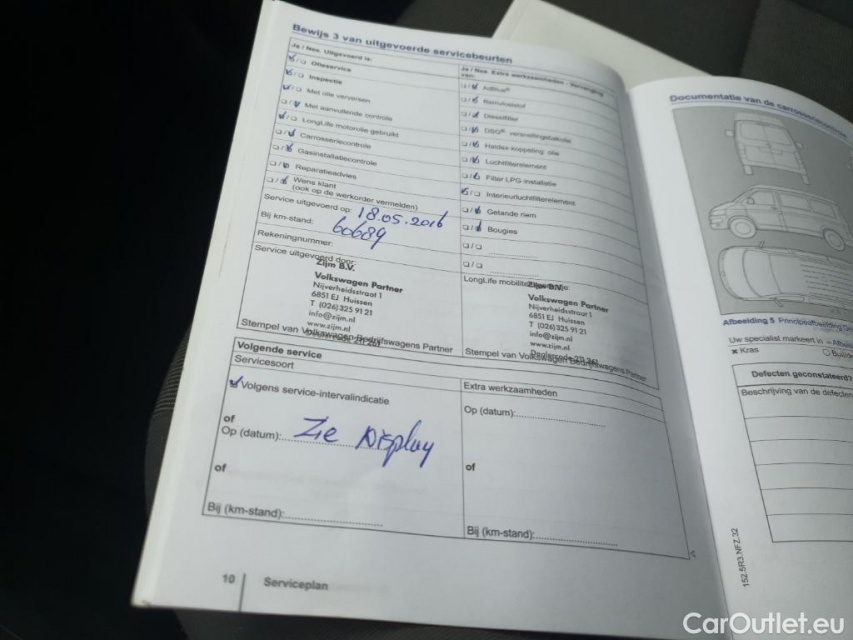 Bewijs 3 van uitgevoerde servicebeurten
Ja / Nee Uitgevoerd is:
Olieservice
Inspectie
Met olie verversen
Met aanvullende controle
LongLife motorolie gebruikt
Carrosseriecontrole
Gasinstallatiecontrole
Reparatieadvies
Wens klant
(ook op de werkorder vermelden)
Service uitgevoerd op: 18.05.2016
Bij km-stand: 60689
Rekeningnummer:
Service uitgevoerd door:
Zijm B.V.
Volkswagen Partner
Nijverheidsstraat 1
6851 EJ Huissen
T (026) 325 91 21
info@zijm.nl
www.zijm.nl
Stempel van Volkswagen Bedrijfswagens Partner
Ja / Nee Extra werkzaamheden - Vervanging
van:
AdBlue®
Remvloeistof
Dieselfilter
DSG® versnellingsbakolie
Haldex-koppeling olie
Luchtfilterelement
Filter LPG-installatie
Interieurluchtfilterelement
Getande riem
Bougies
LongLife
Zijm B.V.
Volkswagen Partner
Nijverheidsstraat 1
6851 EJ Huissen
T (026) 325 91 21
info@zijm.nl
www.zijm.nl
Stempel van Volkswagen Bedrijfswagens Partner
Volgende service
Servicesoort
Volgens service-intervalindicatie
of
Op (datum): Zie Display
of
Bij (km-stand):
Extra werkzaamheden
Op (datum):
of
Bij (km-stand):
10 Serviceplan
Documentatie van de carrosserie
Afbeelding 5 Principeafbeelding
Uw specialist markeert in
× Kras
Defecten geconstateerd?
Beschrijving van de defecten
152.5R3.NFZ.32
CarOutlet.eu